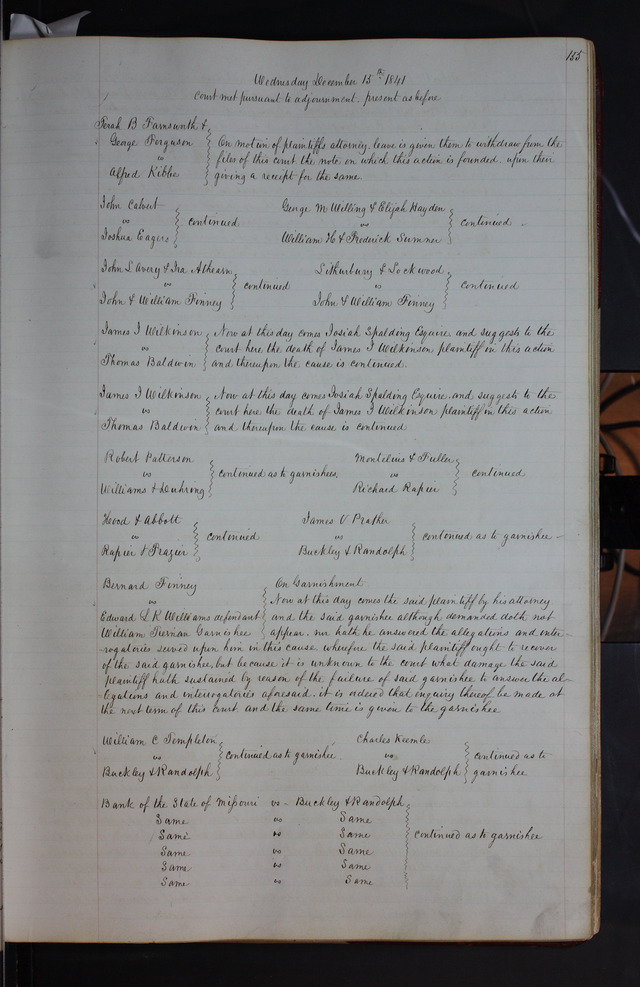 155
Wednesday December 15th 1841
Court met pursuant to adjournment. present as before
Farnsworth &
George Ferguson
vs
Alfred Kibbe
On motion of plaintiffs attorney leave is given them to withdraw from the
files of this court the note on which this action is founded. upon their
giving a receipt for the same
John Calvert
vs
Joshua Eagers
continued
George M Willing & Elijah Hayden
vs
William H & Frederick Sumner
continued
John S Avery & Ira Athearn
vs
John & William Finney
continued
& Lockwood
vs
John & William Finney
continued
James J Wilkinson
vs
Thomas Baldwin
Now at this day comes Josiah Spalding Esquire and suggests to the
court here the death of James J Wilkinson plaintiff in this action
and thereupon the cause is continued.
James J Wilkinson
vs
Thomas Baldwin
Now at this day comes Josiah Spalding Esquire. and suggests to the
court here the death of James J Wilkinson plaintiff in this action
and thereupon the cause is continued
Robert Patterson
vs
Williams & Duhrong
continued as to garnishees.
Montelius & Fuller
vs
Richard Rapier
continued
Hood & Abbott
vs
Rapier & Frazier
continued
James V Prather
vs
Buckley & Randolph
continued as to garnishee
Bernard Finney
vs
Edward L R Williams defendant
William Tiernan Garnishee
On Garnishment
Now at this day comes the said plaintiff by his attorney
and the said garnishee although demanded doth not
appear. nor hath he answered the allegations and inter-
rogatories served upon him in this cause. wherefore the said plaintiff ought to recover
of the said garnishee, but because it is unknown to the court what damage the said
plaintiff hath sustained by reason of the failure of said garnishee to answer the al-
legations and interrogatories aforesaid. it is ordered that inquiry thereof be made at
the next term of this court and the same time is given to the garnishee
William C Templeton
vs
Buckley & Randolph
continued as to garnishee
Charles Keemle
vs
Buckley & Randolph
continued as to
garnishee
Bank of the State of Missouri vs Buckley & Randolph
Same vs Same
Same vs Same
Same vs Same
Same vs Same
Same vs Same
continued as to garnishee